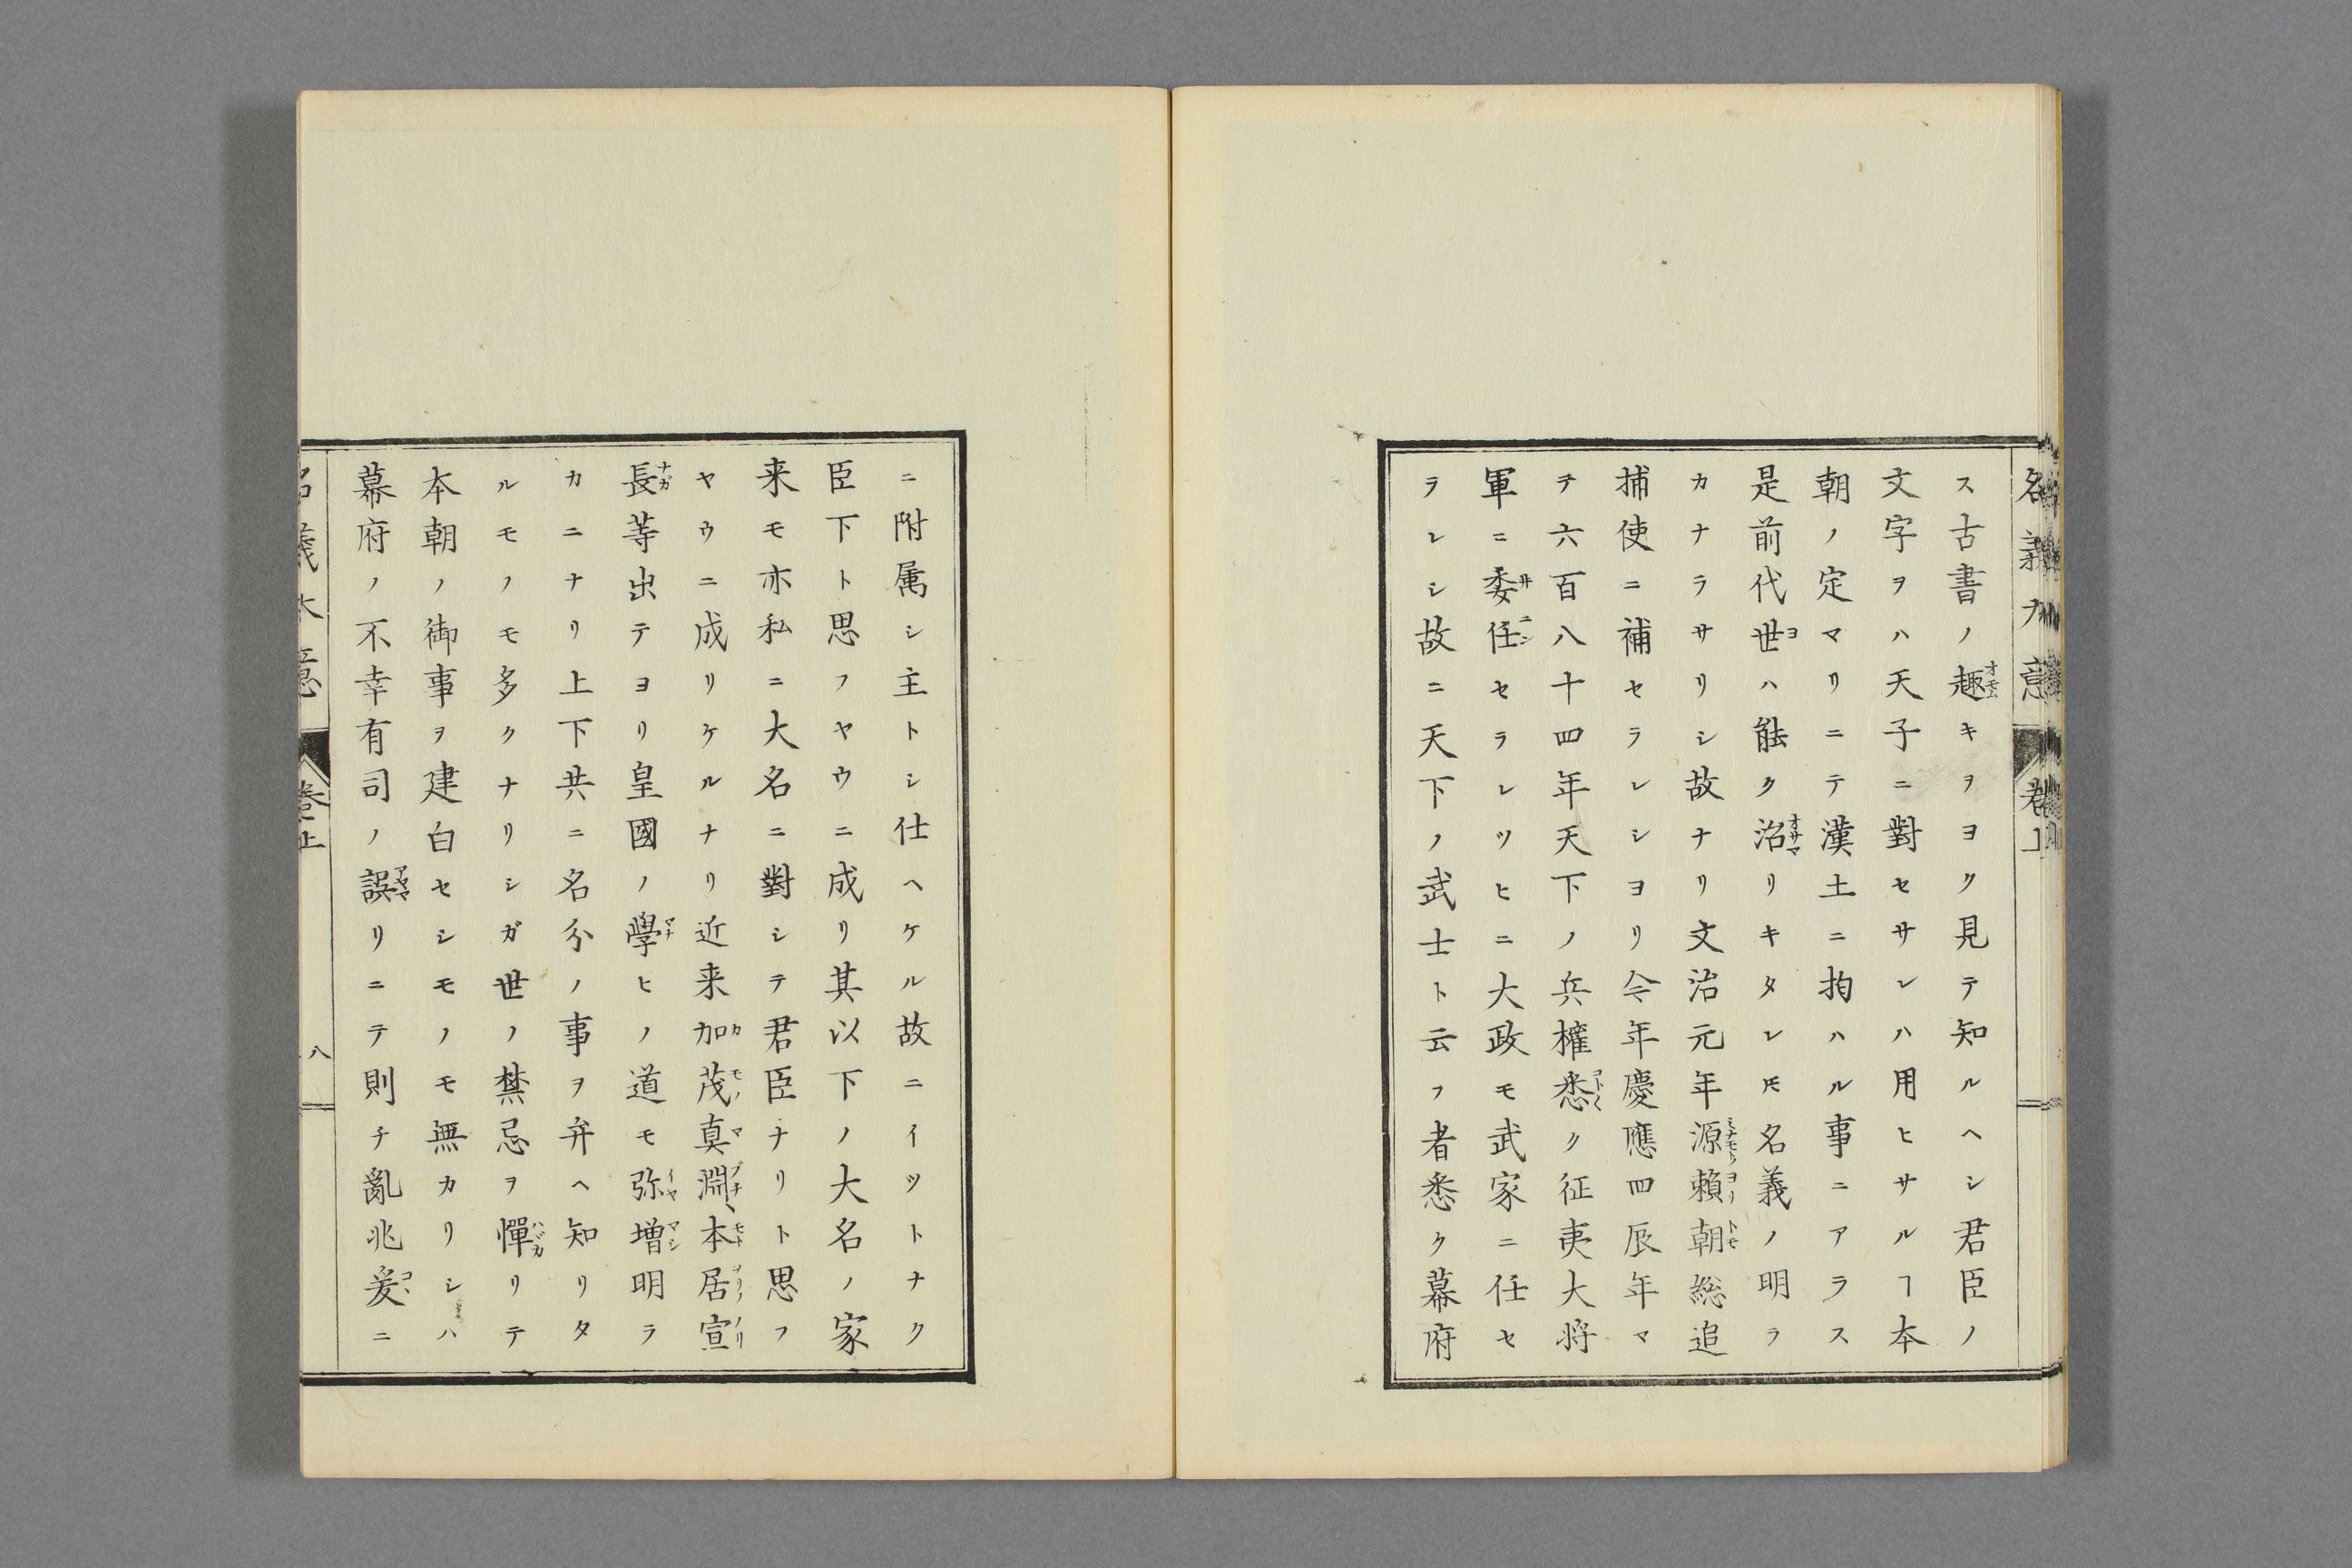 名義大意 卷上
ス古書ノ趣キヲヨク見テ知ルヘシ君臣ノ
文字ヲハ天子ニ對セサレハ用ヒサルヿ本
朝ノ定マリニテ漢土ニ拘ハル事ニアラス
是前代世ハ能ク治リキタレ𪜈名義ノ明ラ
カナラサリシ故ナリ文治元年源賴朝総追
捕使ニ補セラレシヨリ今年慶應四辰年マ
テ六百八十四年天下ノ兵權悉ク征夷大将
軍ニ委任セラレツヒニ大政モ武家ニ任セ
ラレシ故ニ天下ノ武士ト云フ者悉ク幕府
ニ附属シ主トシ仕ヘケル故ニイツトナク
臣下ト思フヤウニ成リ其以下ノ大名ノ家
来モ亦私ニ大名ニ對シテ君臣ナリト思フ
ヤウニ成リケルナリ近来加茂真淵、本居宣
長等出テヨリ皇國ノ學ヒノ道モ弥増明ラ
カニナリ上下共ニ名分ノ事ヲ弁ヘ知リタ
ルモノモ多クナリシガ世ノ禁忌ヲ憚リテ
本朝ノ御事ヲ建白セシモノモ無カリシハ
幕府ノ不幸有司ノ誤リニテ則チ亂兆爰ニ
名義大意 卷上 八